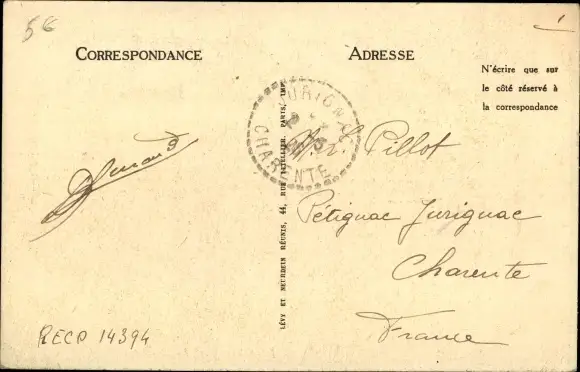 5€
CORRESPONDANCE
ADRESSE
N'écrire que sur
le côté réservé à
la correspondance
JURIGNAC
CHARENTE
LÉVY ET NEURDEIN RÉUNIS, 44, RUE LETELLIER, PARIS, IMP.
Pillot
Pétignac Jurignac
Charente
France
RECP 14394